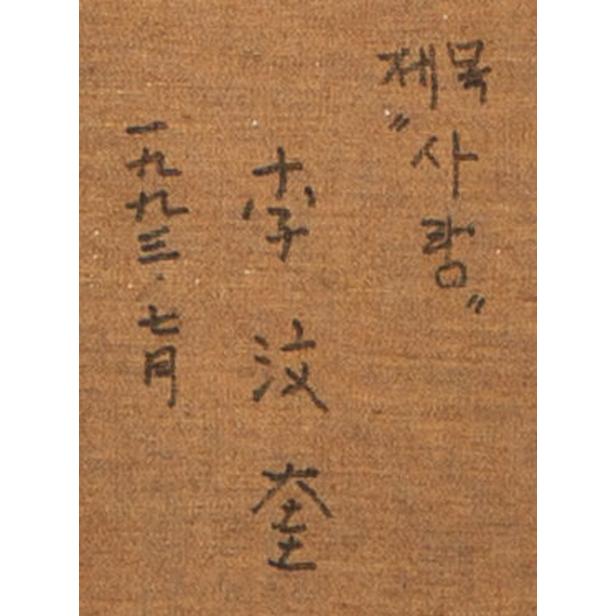 제목
"사랑"
李汶奎
一九九三・七月